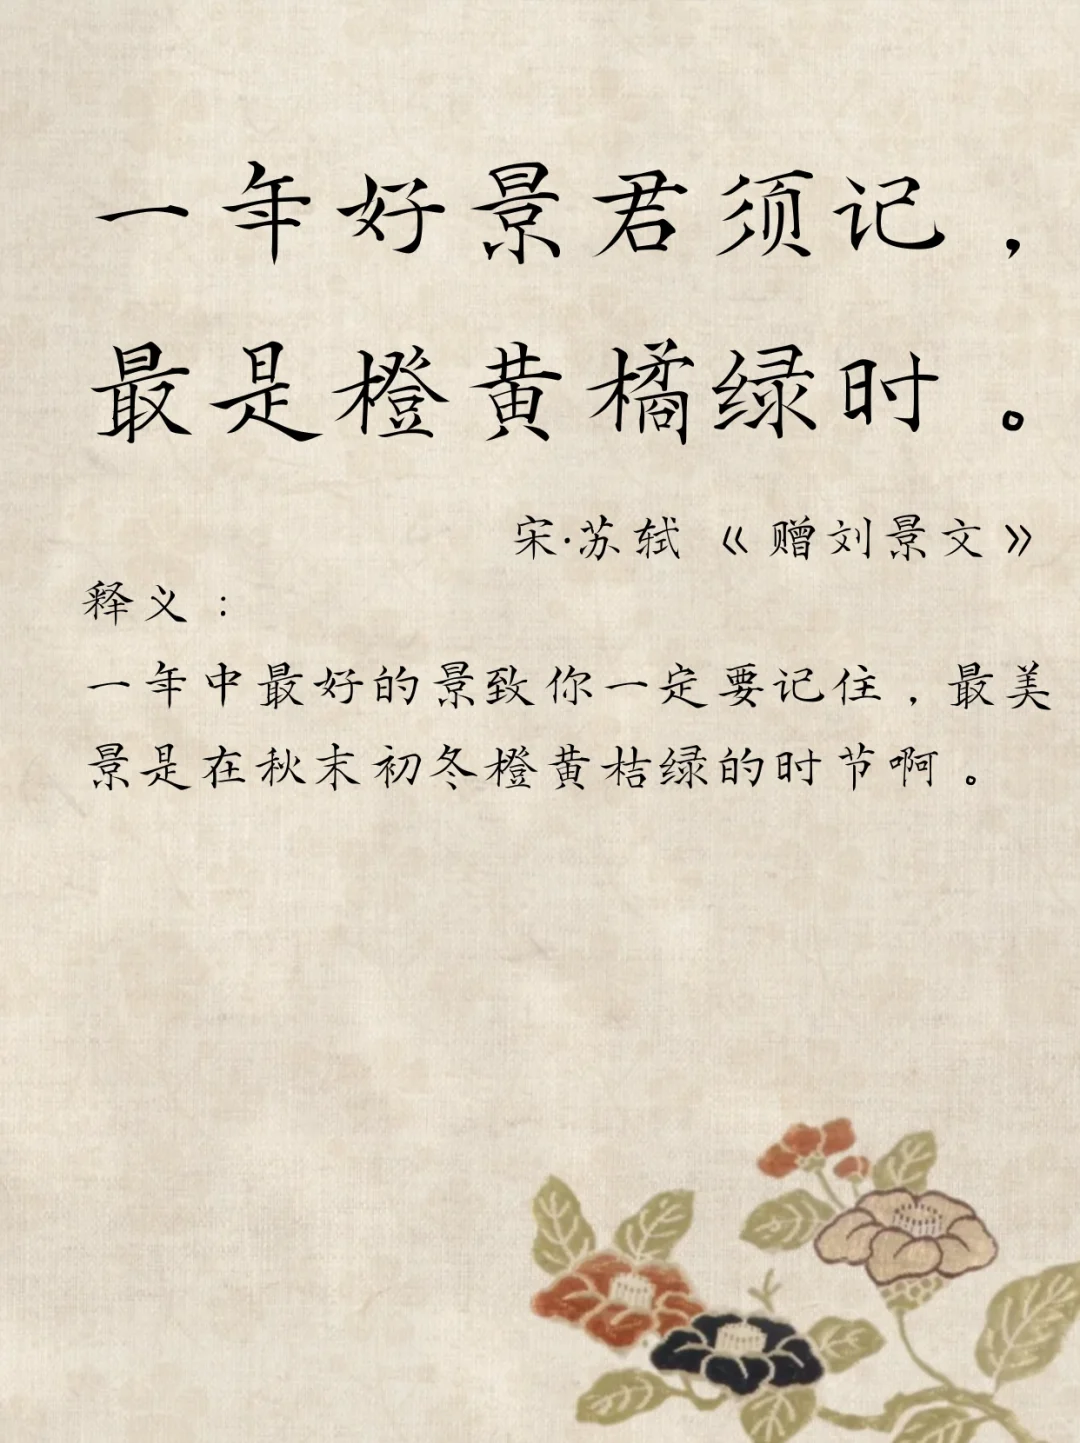 一年好景君须记，
最是橙黄橘绿时。
宋·苏轼《赠刘景文》
释义：
一年中最好的景致你一定要记住，最美
景是在秋末初冬橙黄桔绿的时节啊。